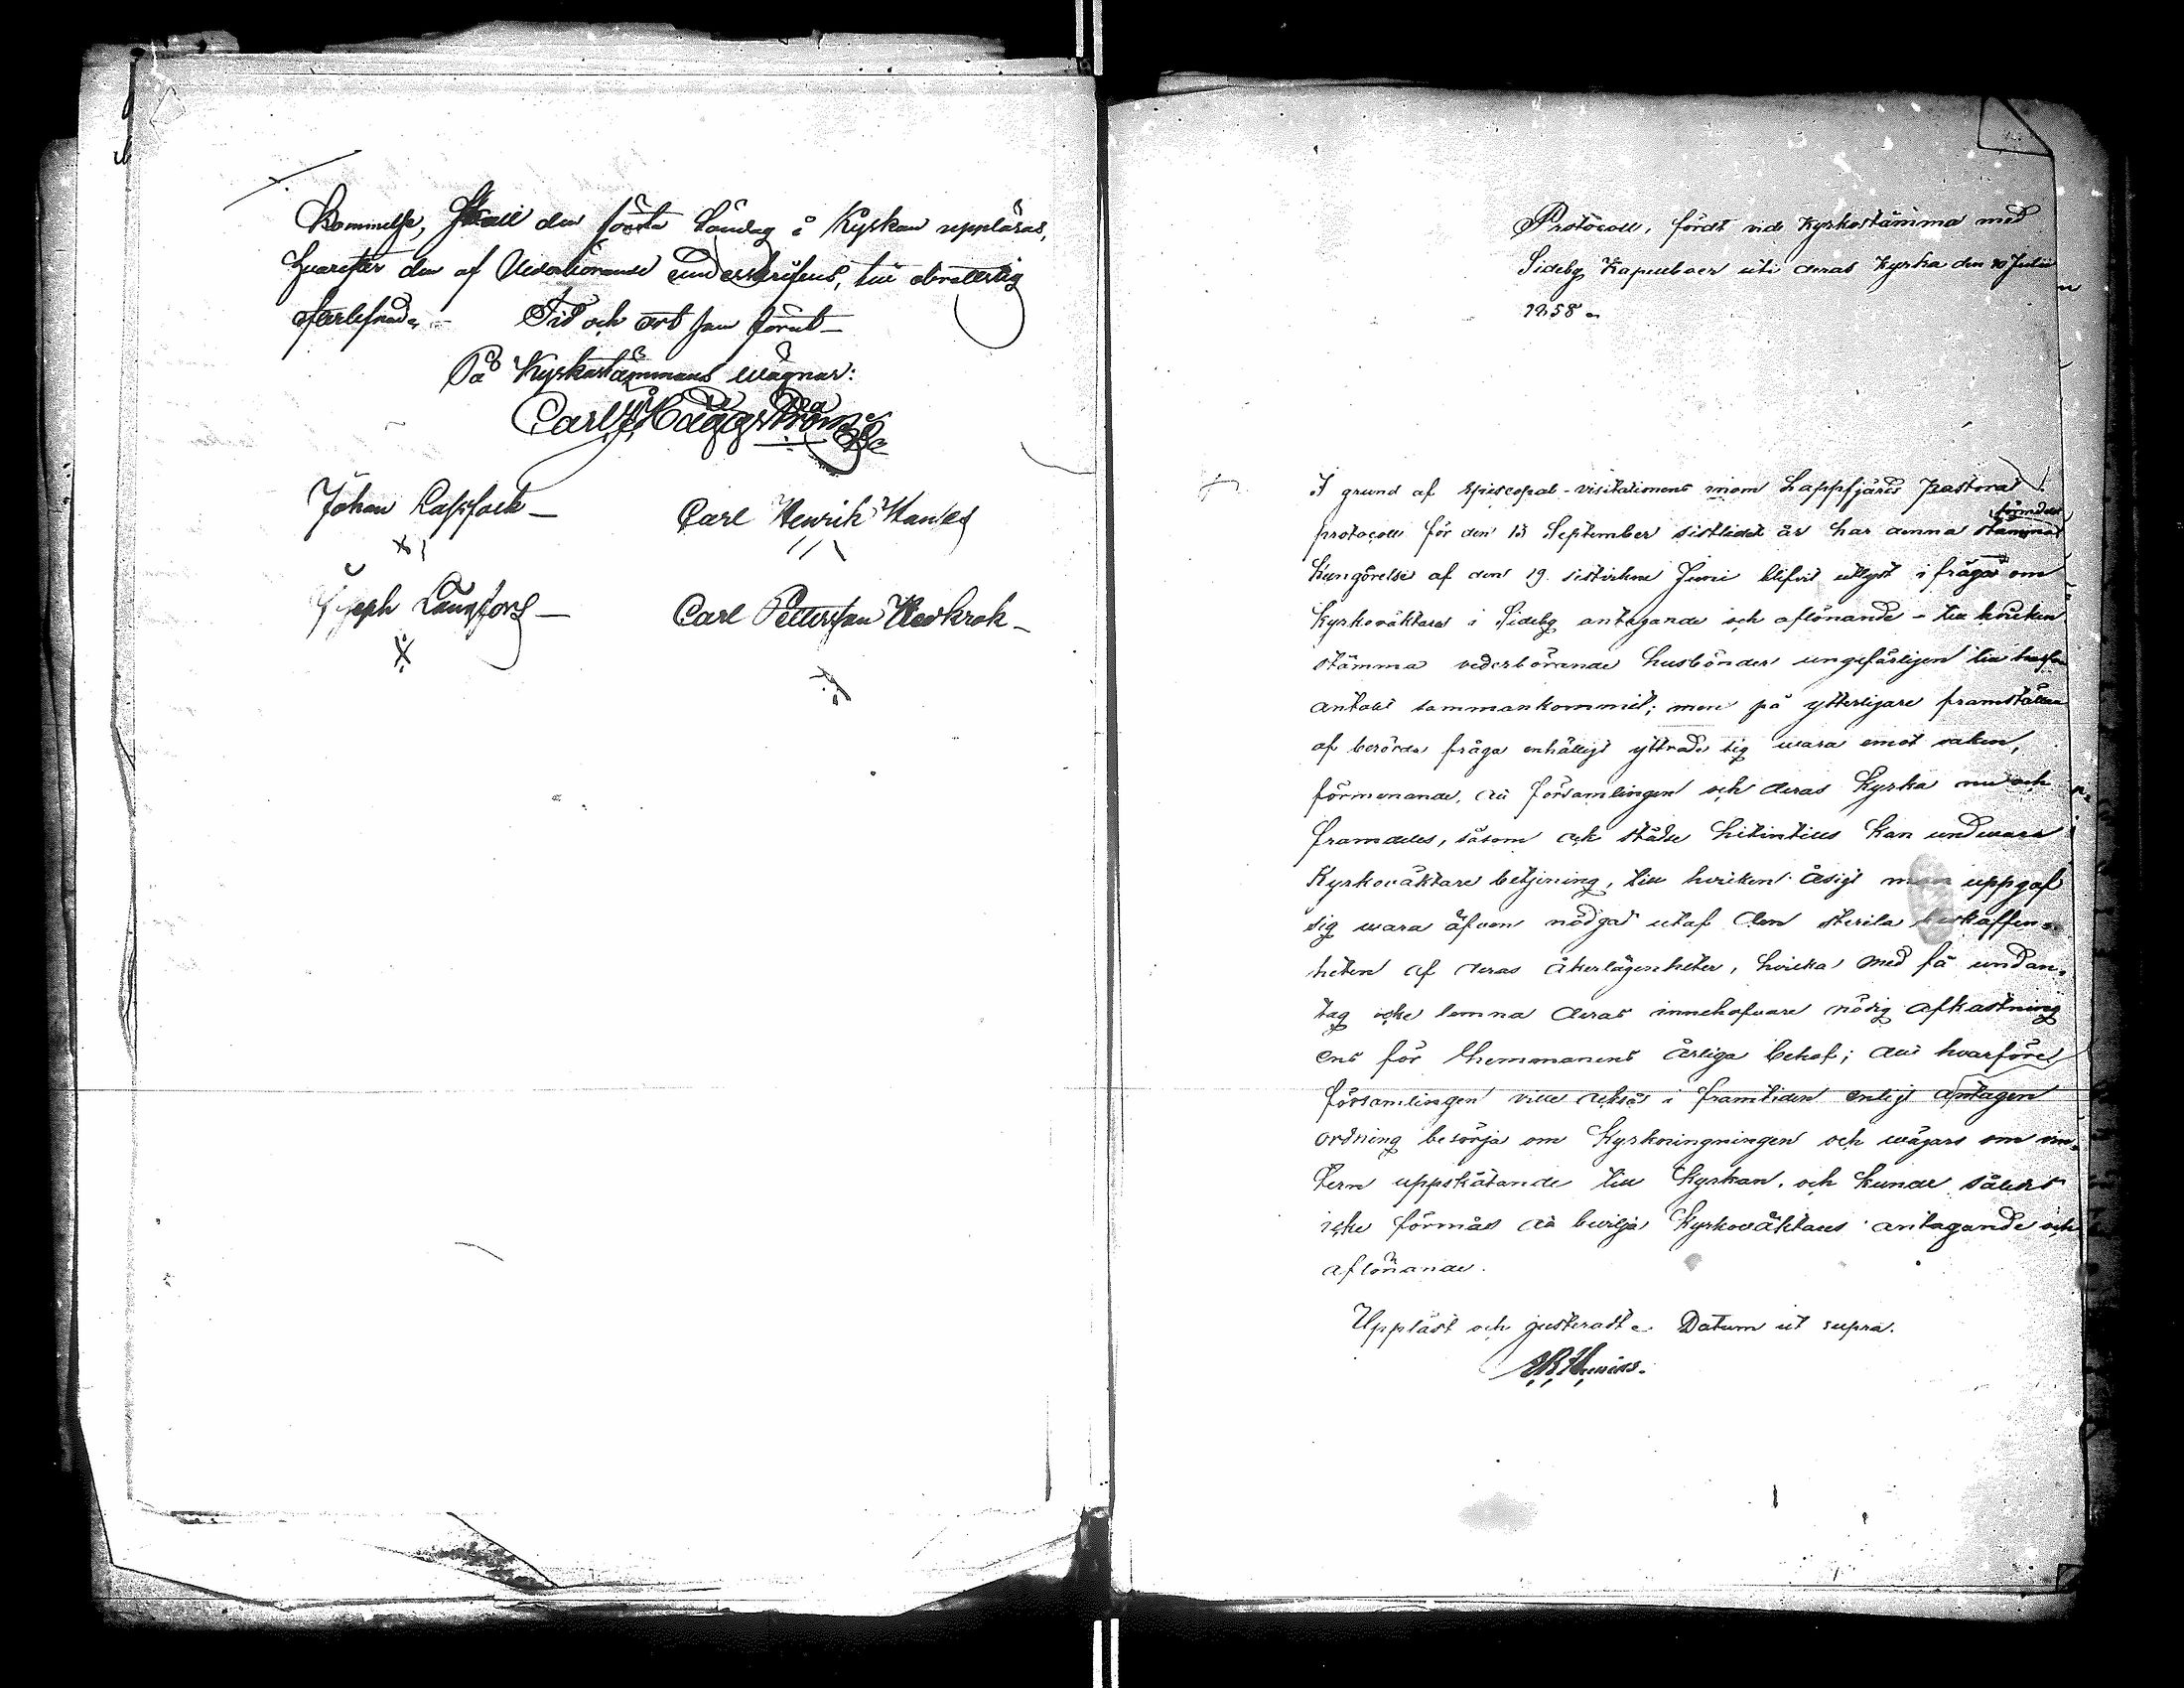 Kommelse, Skall den första Söndag i Kyrkan uppläsas,
hvarefter den af Vederbörande underskrifves, till obrottslig
efterlefnad. Tid och ort som förut —
På Kyrkostämmans wägnar:
Carl Häggström
Johan Lassfolk —
Carl Henrik
Joseph Långfors —
Carl Pettersson —
Protocoll, fördt vid Kyrkostämma med
Sideby Kapellboer uti deras Kyrka den Julii
1858.
I grund af Episcopal-visitationens inom Lappfjärds Pastorat
protocoll för den 13 September sistledit år har denna stämma
Kungörelse af den 19 sistvikne Junii blifvit utlyst i fråga om
Kyrkoväktares i Sideby antagande och aflönande – till hvilken
stämma vederbörande husbönder ungefärligen till
antalet sammankommit; men på ytterligare framställan
af berörda fråga enhälligt yttrade sig wara emot saken,
förmenande, att församlingen och deras Kyrka nu och
framdeles, såsom ock städse hitintills kan undwara
Kyrkoväktare betjening, till hvilken åsigt man uppgaf
sig wara äfven nödgad utaf den sterila beskaffen-
heten af deras åkerlägenheter, hvilka med få undan-
tag icke lemna deras innehafvare nödig afkastning
ens för hemmanens årliga behof; att hvarföre
församlingen ville också i framtiden enligt antagen
ordning besörja om Kyrkoringningen och wägars om vin-
tern uppskåtande till Kyrkan, och kunde således
icke förmås att bevilja Kyrkoväktares antagande och
aflönande.
Uppläst och justeradt. Datum ut supra.